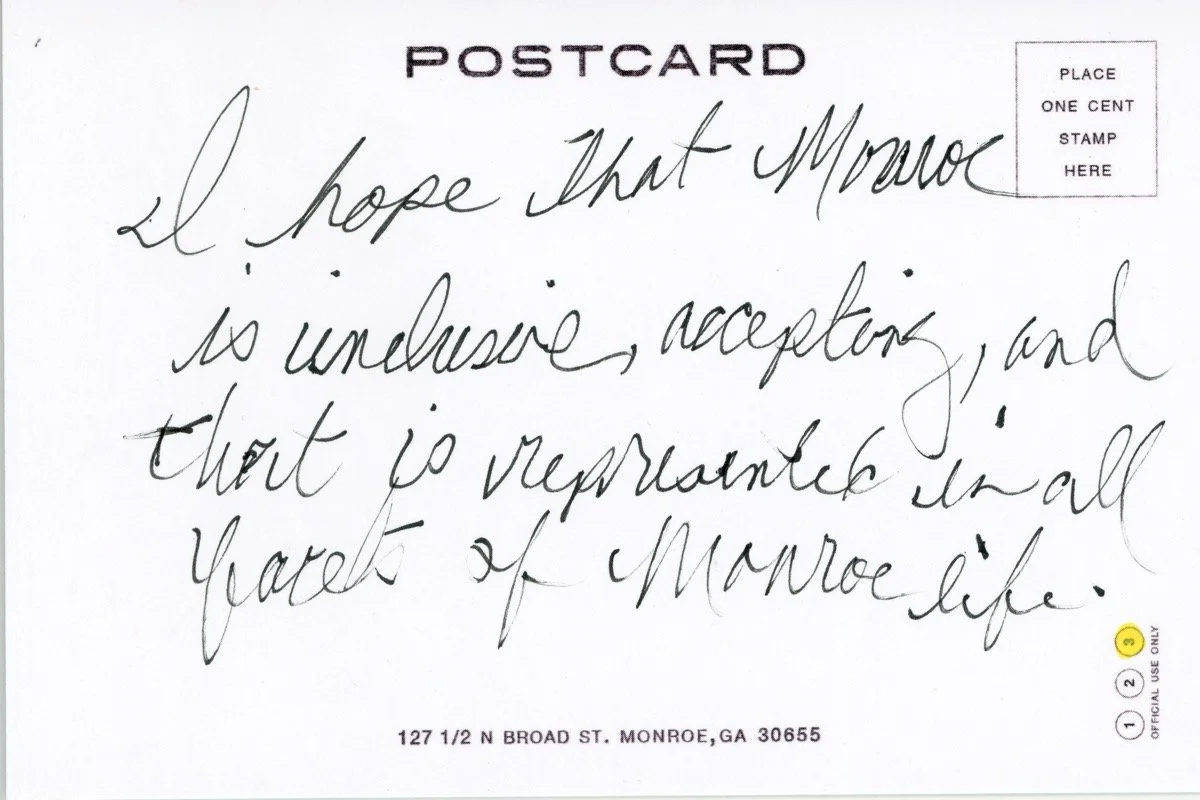 POSTCARD
PLACE
ONE CENT
STAMP
HERE
I hope that Monroe
is inclusive, accepting, and
that is represented in all
facets of Monroe life.
127 1/2 N BROAD ST. MONROE, GA 30655
1 2 3
OFFICIAL USE ONLY